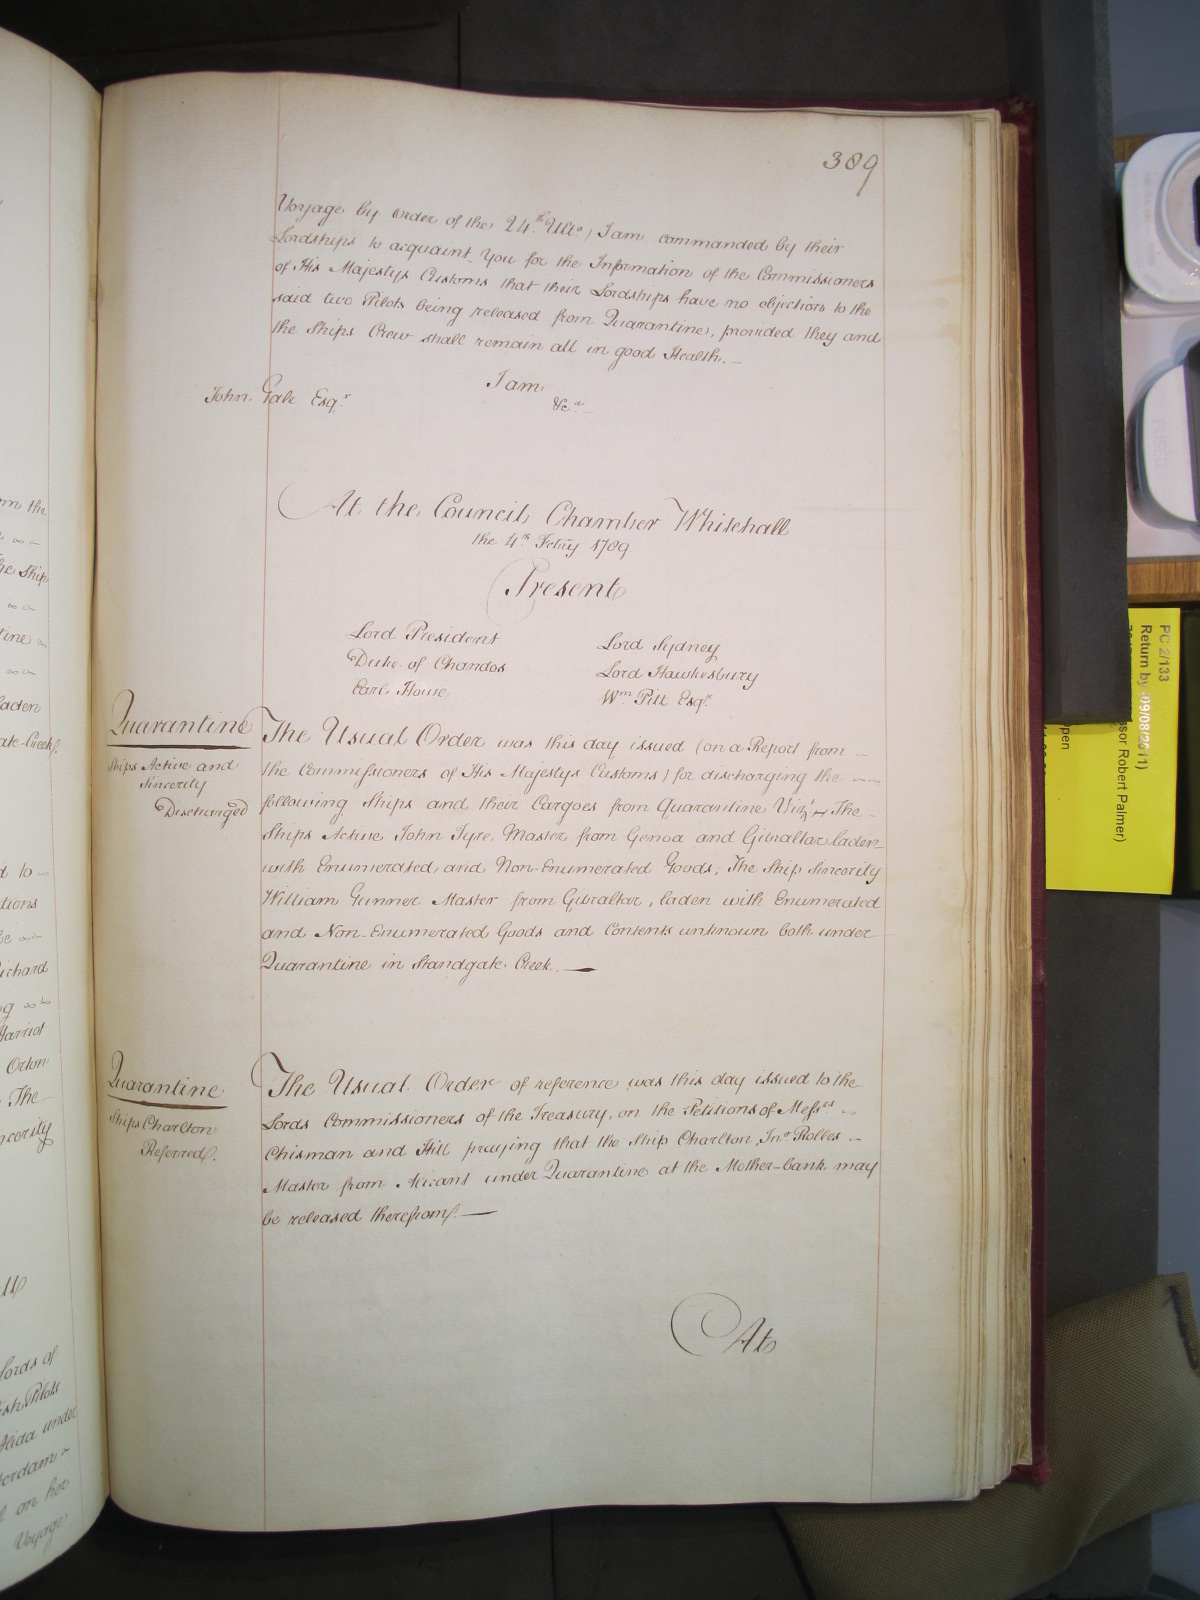 389
Voyage by Order of the 24.th Ult.o) I am commanded by their
Lordships to acquaint You for the Information of the Commissioners
of His Majestys Customs that their Lordships have no objection to the
said two Pilots being released from Quarantine, provided they and
the Ships Crew shall remain all in good Health. —
I am
&c.a
John Gale Esq.r
At the Council Chamber Whitehall
the 4th Febry 1789
Present
Lord President
Duke of Chandos
Earl Howe
Lord Sydney
Lord Hawkesbury
Wm Pitt Esqr.
Quarantine
Ships Active and
Sincerity
Discharged
The Usual Order was this day issued (on a Report from
the Commissioners of His Majestys Customs) for discharging the
following Ships and their Cargoes from Quarantine Vizt. The
Ships Active John Tyre, Master from Genoa and Gibraltar, laden
with Enumerated and Non-Enumerated Goods; The Ship Sincerity
William Gunner Master from Gibraltar, laden with Enumerated
and Non-Enumerated Goods and Contents unknown both under
Quarantine in Standgate Creek. —
Quarantine
Ships Charlton
Referred.
The Usual Order of reference was this day issued to the
Lords Commissioners of the Treasury, on the Petitions of Messrs
Chisman and Hill praying that the Ship Charlton, Jno. Rolles
Master from Alicant under Quarantine at the Mother-bank may
be released therefrom. —
At
om the
he Ship
tine
laden
ate-Creek.
d to
tions
Richard
Harriot
Orton
The
ncerity
Lords of
ish Pilots
Alida under
terdam
on her
Voyage
PC 2/133
Return by (09/08/2011)
sor Robert Palmer)
pen